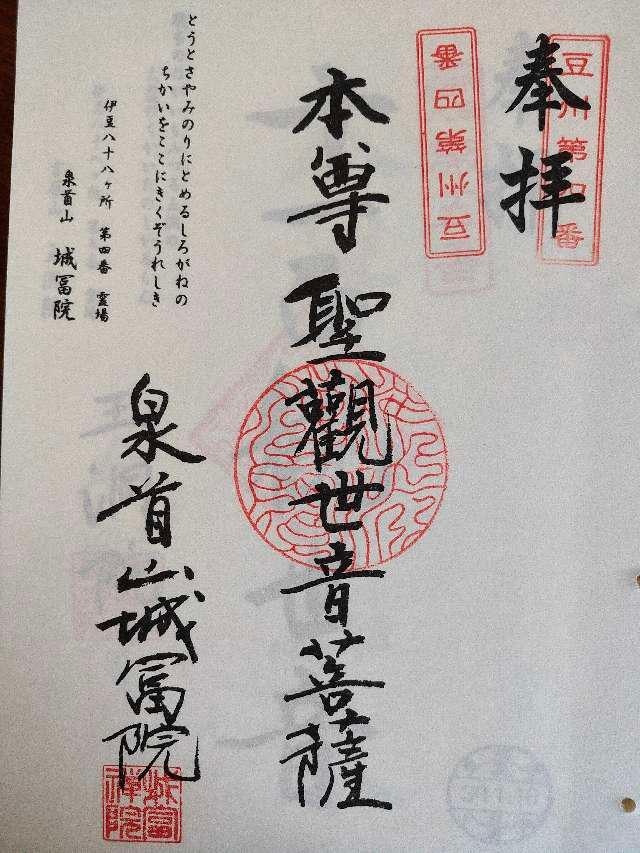 奉拝
豆州第四番
豆州第四番
本尊聖觀世音菩薩
とうとさやみのりにとめるしろがねの
ちかいをここにきくぞうれしき
伊豆八十八ヶ所 第四番 霊場
泉首山 城冨院
泉首山城冨院
城富禅院